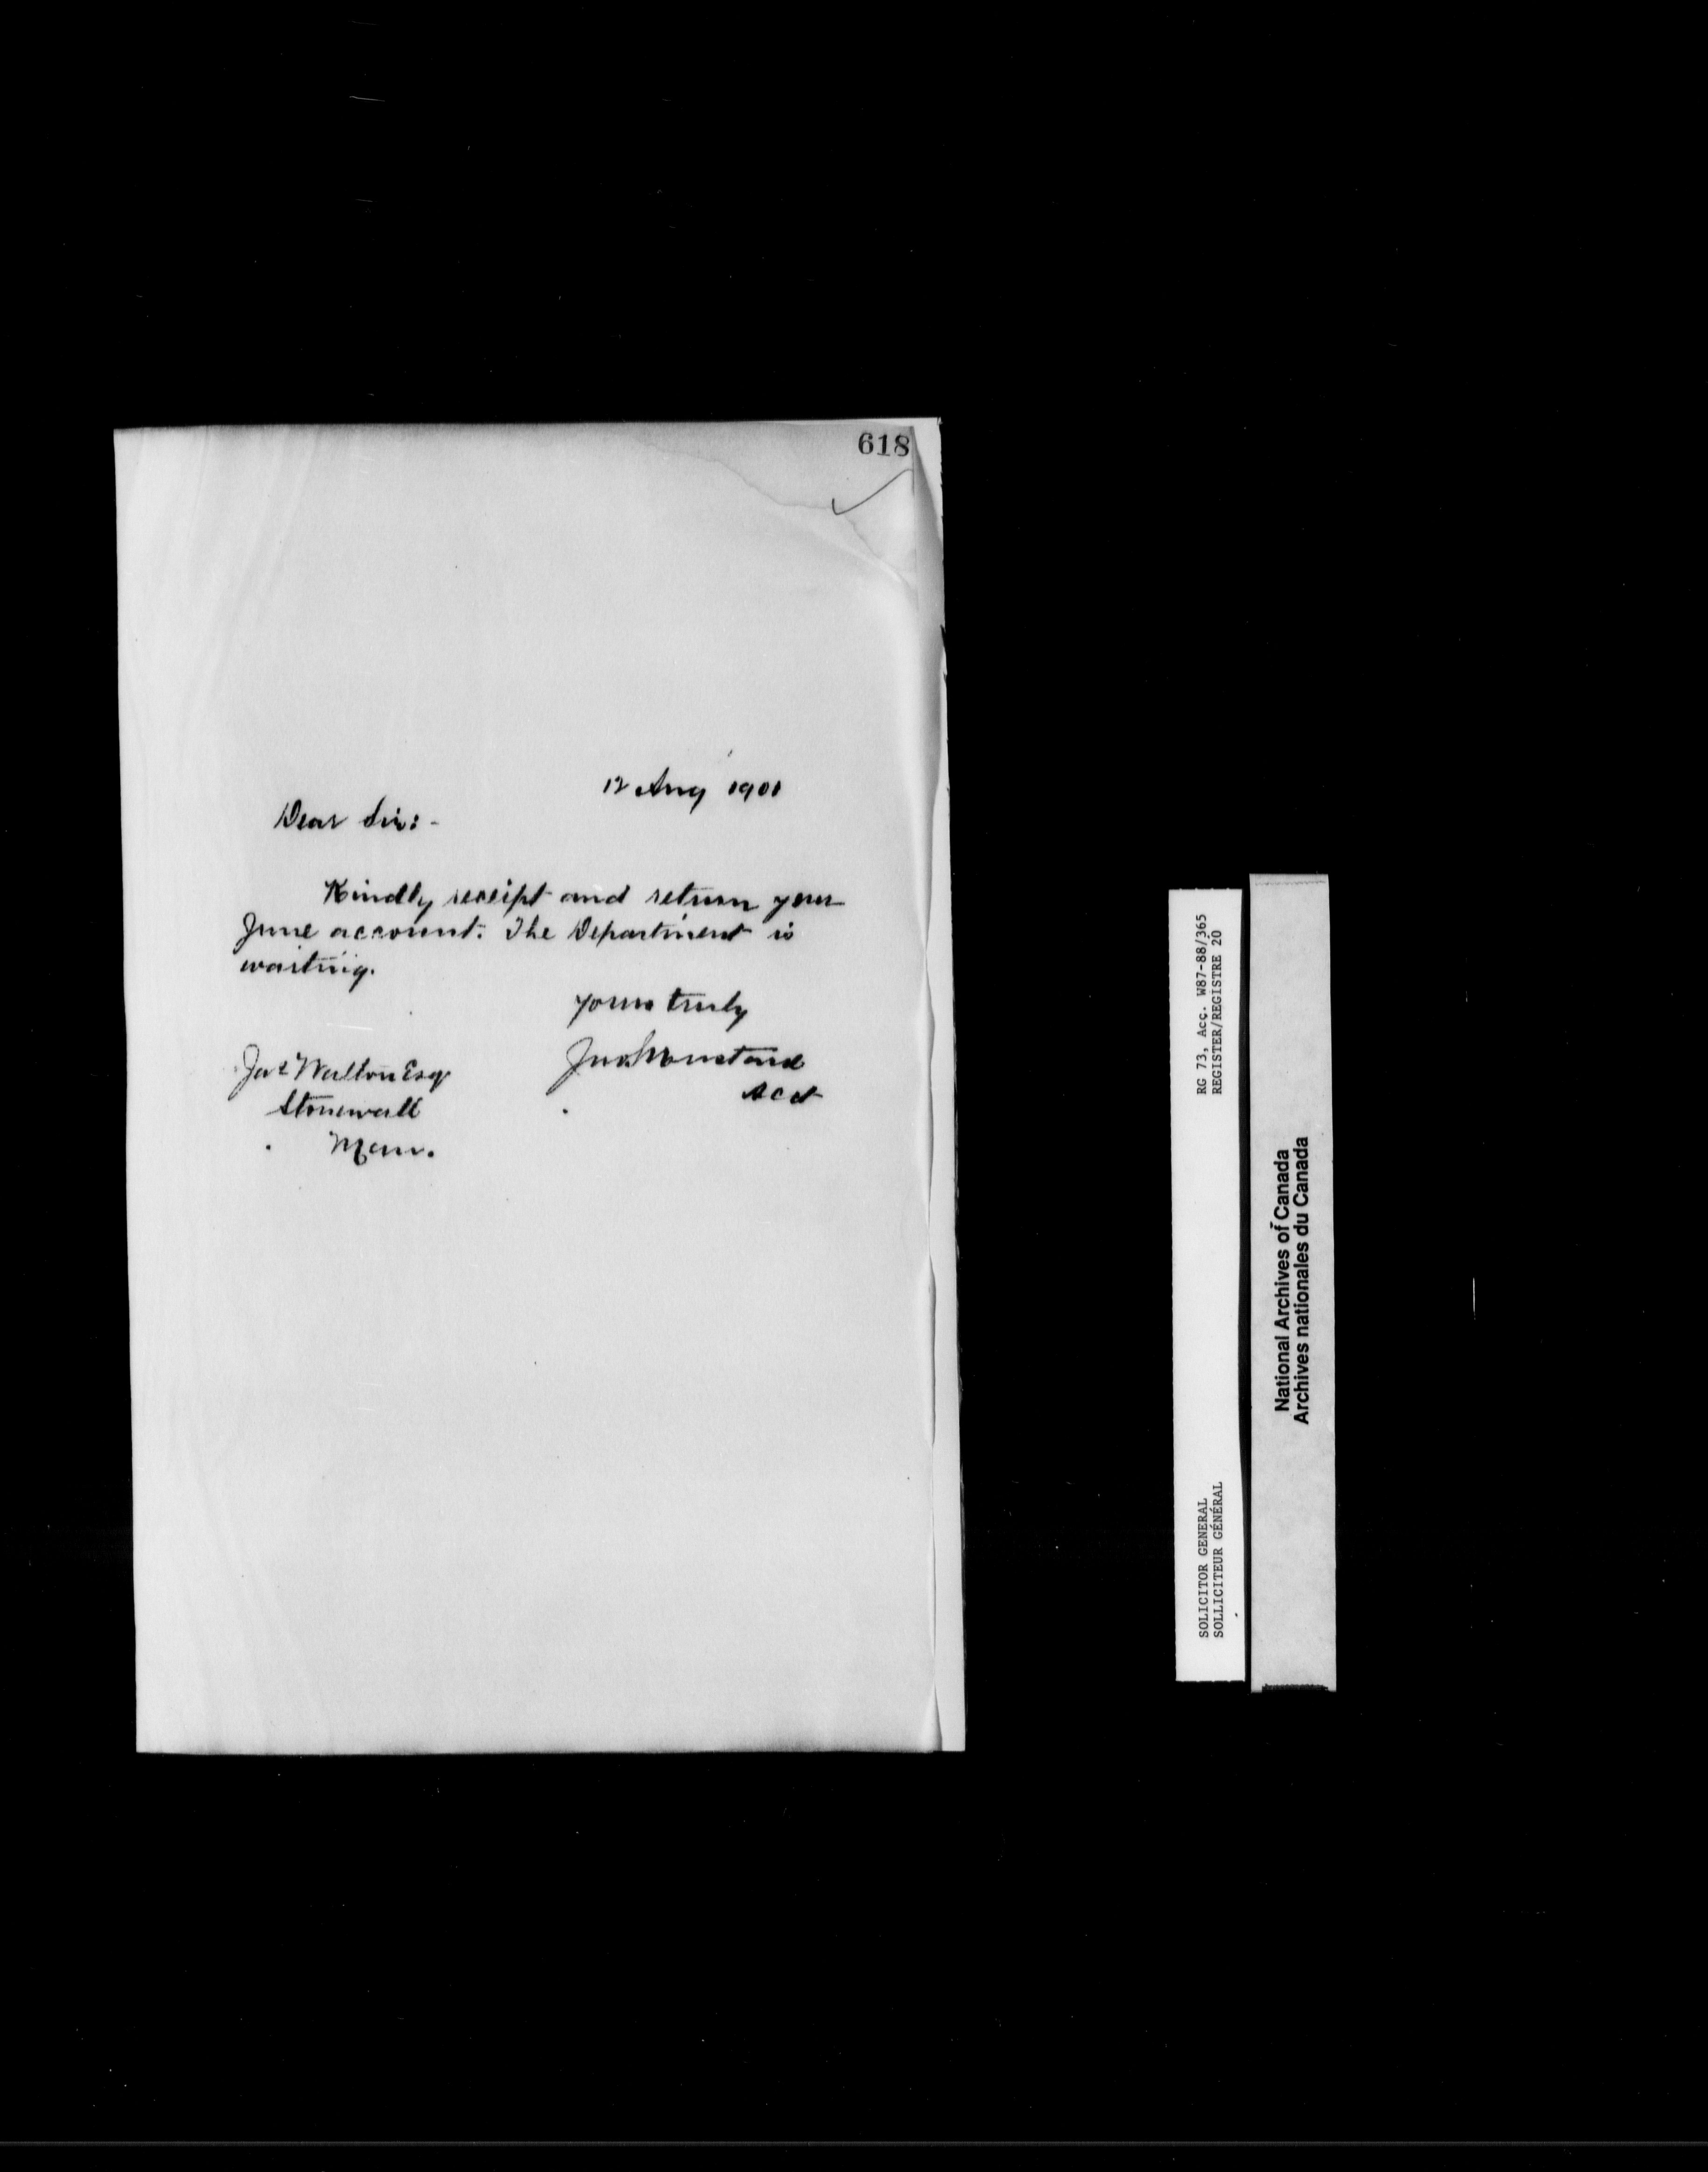 618
12 Aug 1901
Dear Sir:-
Kindly receipt and return your
June account. The Department is
waiting.
Yours truly
Jas Walton Esq
Acct
Stonewall
Man.
RG 73, Acc. W87-88/365
REGISTER/REGISTRE 20
SOLICITOR GENERAL
SOLLICITEUR GÉNÉRAL
National Archives of Canada
Archives nationales du Canada